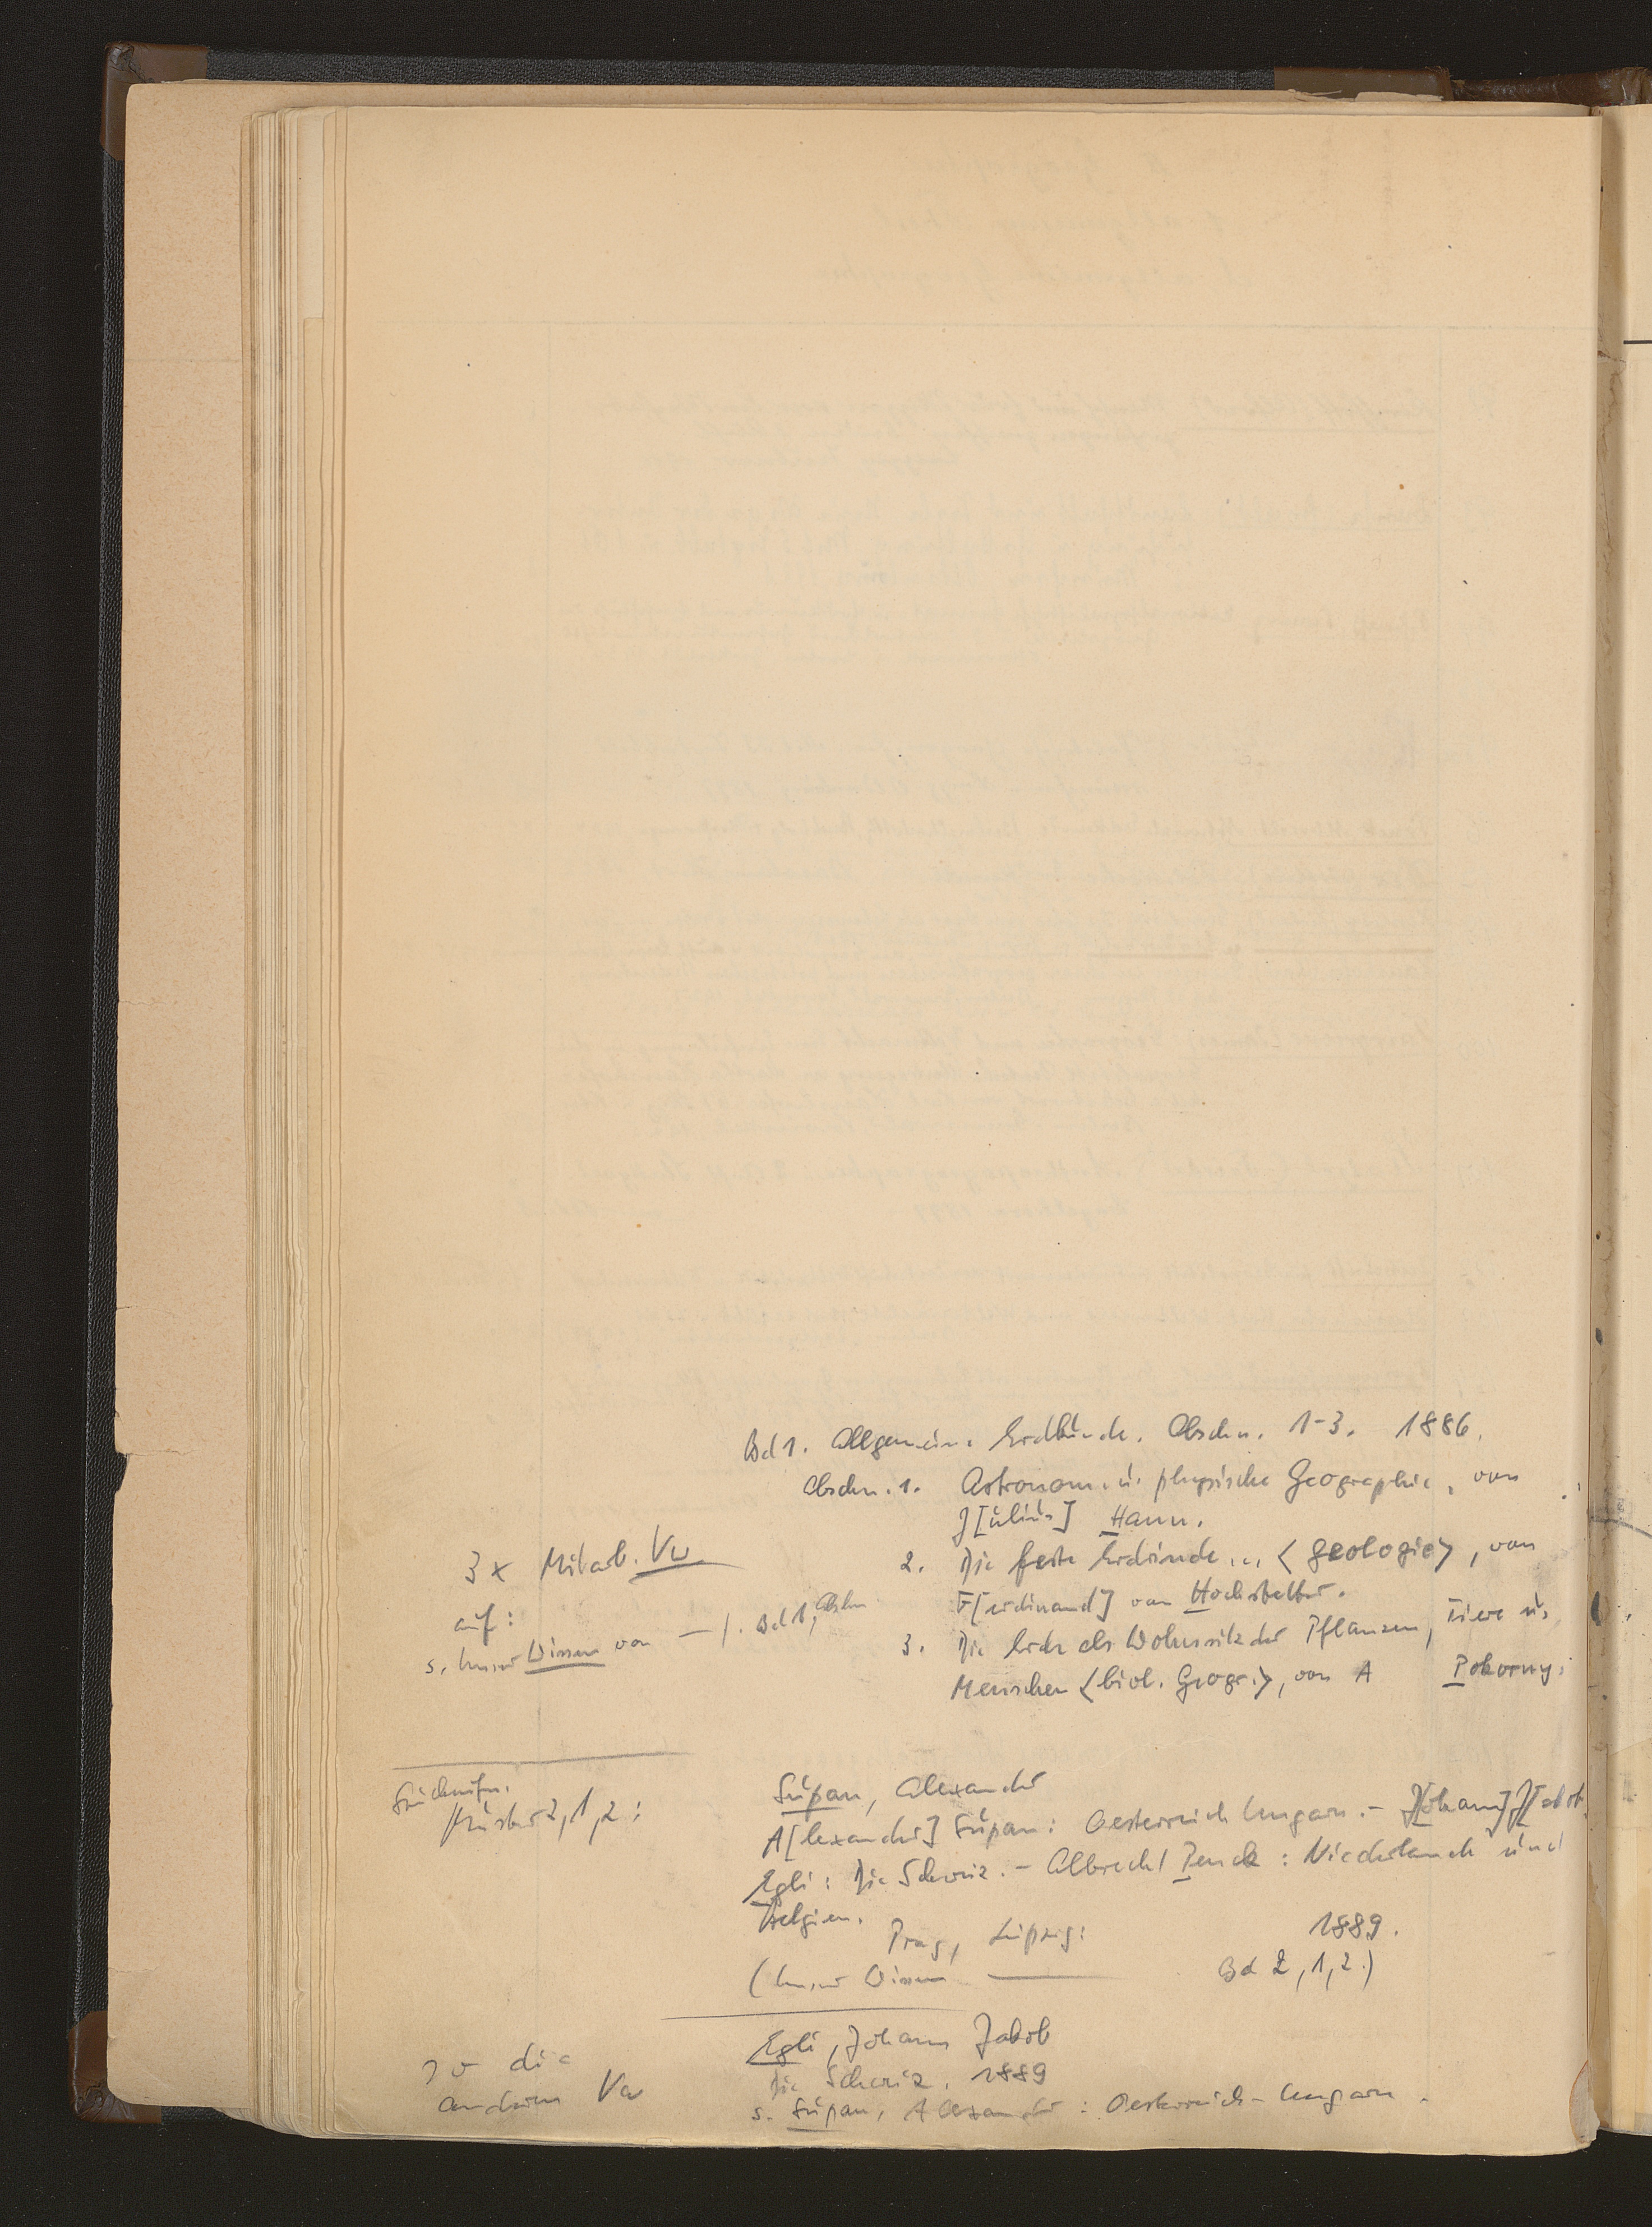 Bd 1. Allgemeine Erdkunde. Abschn. 1-3. 1886.
Abschn. 1. Astronom. u. physische Geographie, von
J[ulius] Hann.
2. Die feste Erdrinde ... <Geologie>, von
F[erdinand] von Hochstetter.
3. Die Erde als Wohnsitz der Pflanzen, Tiere u.
Menschen <biol. Geogr.>, von A Pokorny.
3 x Mitarb. Vw
auf:
s. Unser Wissen von — /. Bd 1, Abschn
2, 1, 2:
Supan, Alexander
A[lexander] Supan: Oesterreich Ungarn. - J[ohann] J[akob]
Egli: Die Schweiz. - Albrecht Penck: Niederlande und
Belgien.
Prag, Leipzig: 1889.
(Unser Wissen — Bd 2, 1, 2.)
so die
andern Vw
Egli, Johann Jakob
Die Schweiz. 1889
s. Supan, Alexander: Oesterreich-Ungarn.